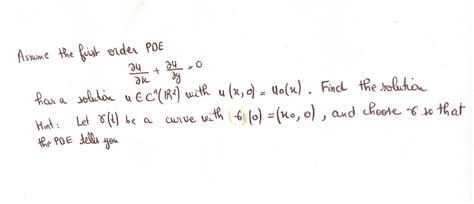 Assume the first order PDE
∂u/∂x + ∂u/∂y = 0
has a solution u ∈ C¹(ℝ²) with u(x,0) = u₀(x). Find the solution
Hint: Let γ(t) be a curve with γ(0) = (x₀, 0), and choose γ so that
the PDE tells you